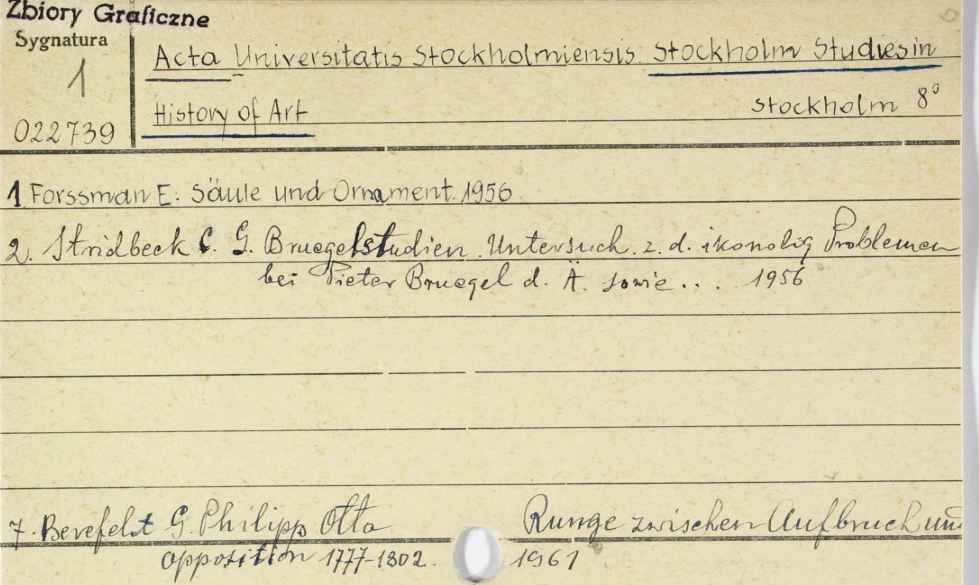 Zbiory Graficzne
Sygnatura
1
022739
Acta Universitatis Stockholmiensis. Stockholm Studies in
History of Art
Stockholm 8°
1 Forssman E. Säule und Ornament. 1956
2. Stridbeck C. G. Bruegelstudien. Untersuch. z. d. ikonolig Problemen
bei Pieter Bruegel d. Ä. sowie... 1956
7. Berefelt G. Philipp Otto Runge zwischen Aufbruch und
Opposition 1777-1802. 1961